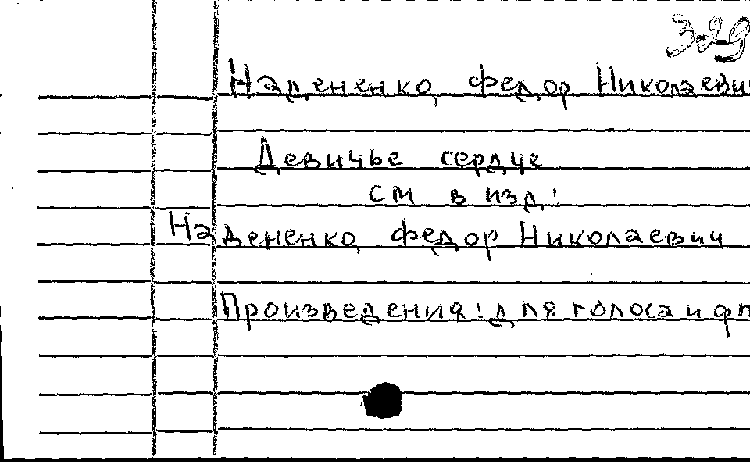 329
Надененко, Федор Николаеви
Девичье сердце
см в изд:
Надененко, Федор Николаевич
Произведения: для голоса и фп